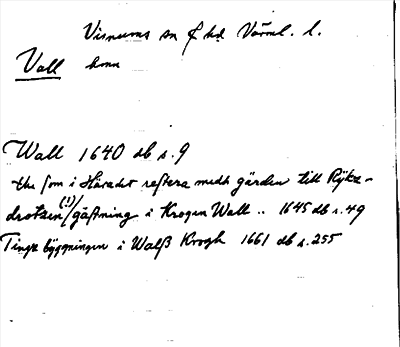 Visnums sn o hd Värml. l.
Vall krnn
Wall 1640 db s. 9
the som i Häradet restera medh gärden till Rykz-
drotzen (!)/gästning i Krogen Wall .. 1645 db s. 49
Tingz byggningen i Walß Krogh 1661 db s. 255